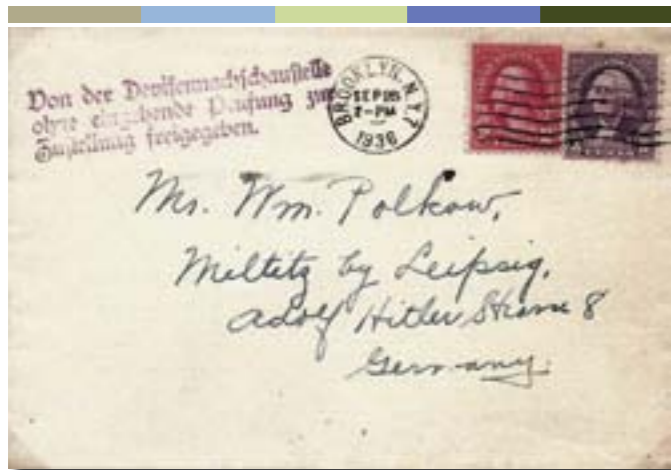 Von der Devisennachschaustelle
ohne eingehende Prüfung zur
Zustellung freigegeben.
BROOKLYN, N.Y. 7
SEP 25
7-PM
1936
Mr. Wm. Polkow,
Miltitz by Leipsig,
Adolf Hitler Strasse 8
Germany.